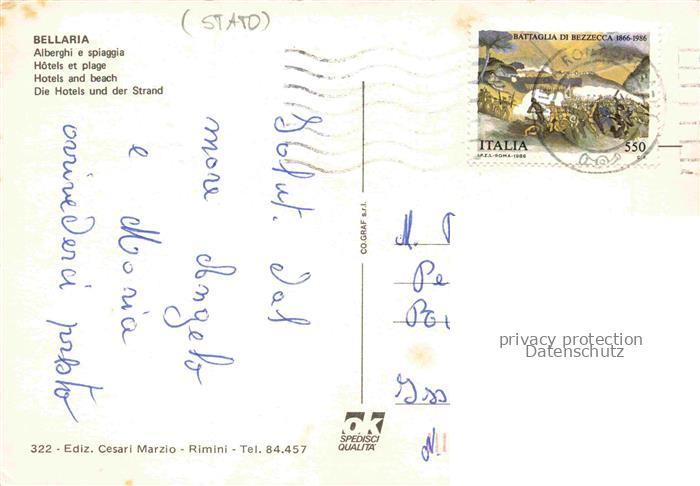 (STATO)
BELLARIA
Alberghi e spiaggia
Hôtels et plage
Hotels and beach
Die Hotels und der Strand
BATTAGLIA DI BEZZECCA 1866-1986
ITALIA 550
I.P.Z.S.-ROMA-1986
Salut. dal
mare Angelo
e Maria
arrivederci presto
CO.GRAF s.r.l.
privacy protection
Datenschutz
ok
SPEDISCI
QUALITA'
322 - Ediz. Cesari Marzio - Rimini - Tel. 84.457